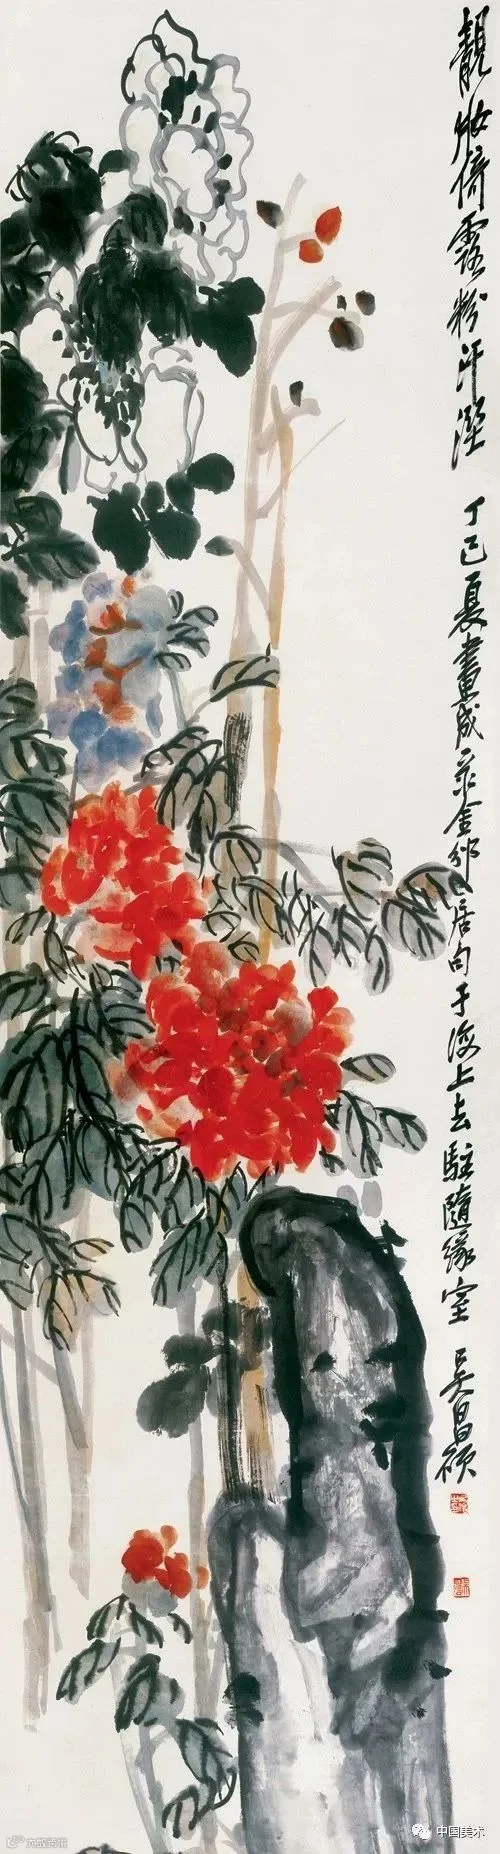 靚妝倚露粉汗溼 丁巳夏畫成录金邠居句于海上去駐隨緣室 吳昌碩
中国美术